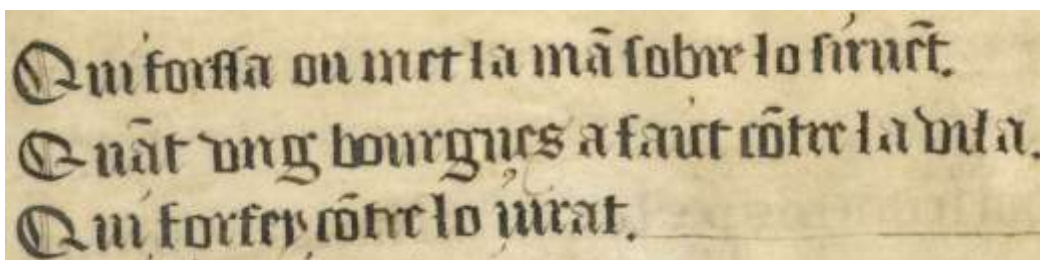 Qui forssa ou met la mã sobre lo siruẽt.
Quãt ung bourgues a fait cõtre la vila.
Qui forfey cõtre lo jurat.